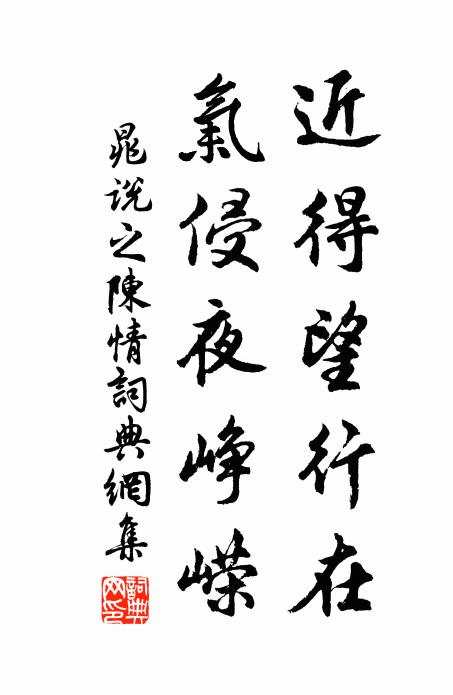 近得望行在
氣侵夜崢嶸
晁說之陳情詞典網集
詞典网印